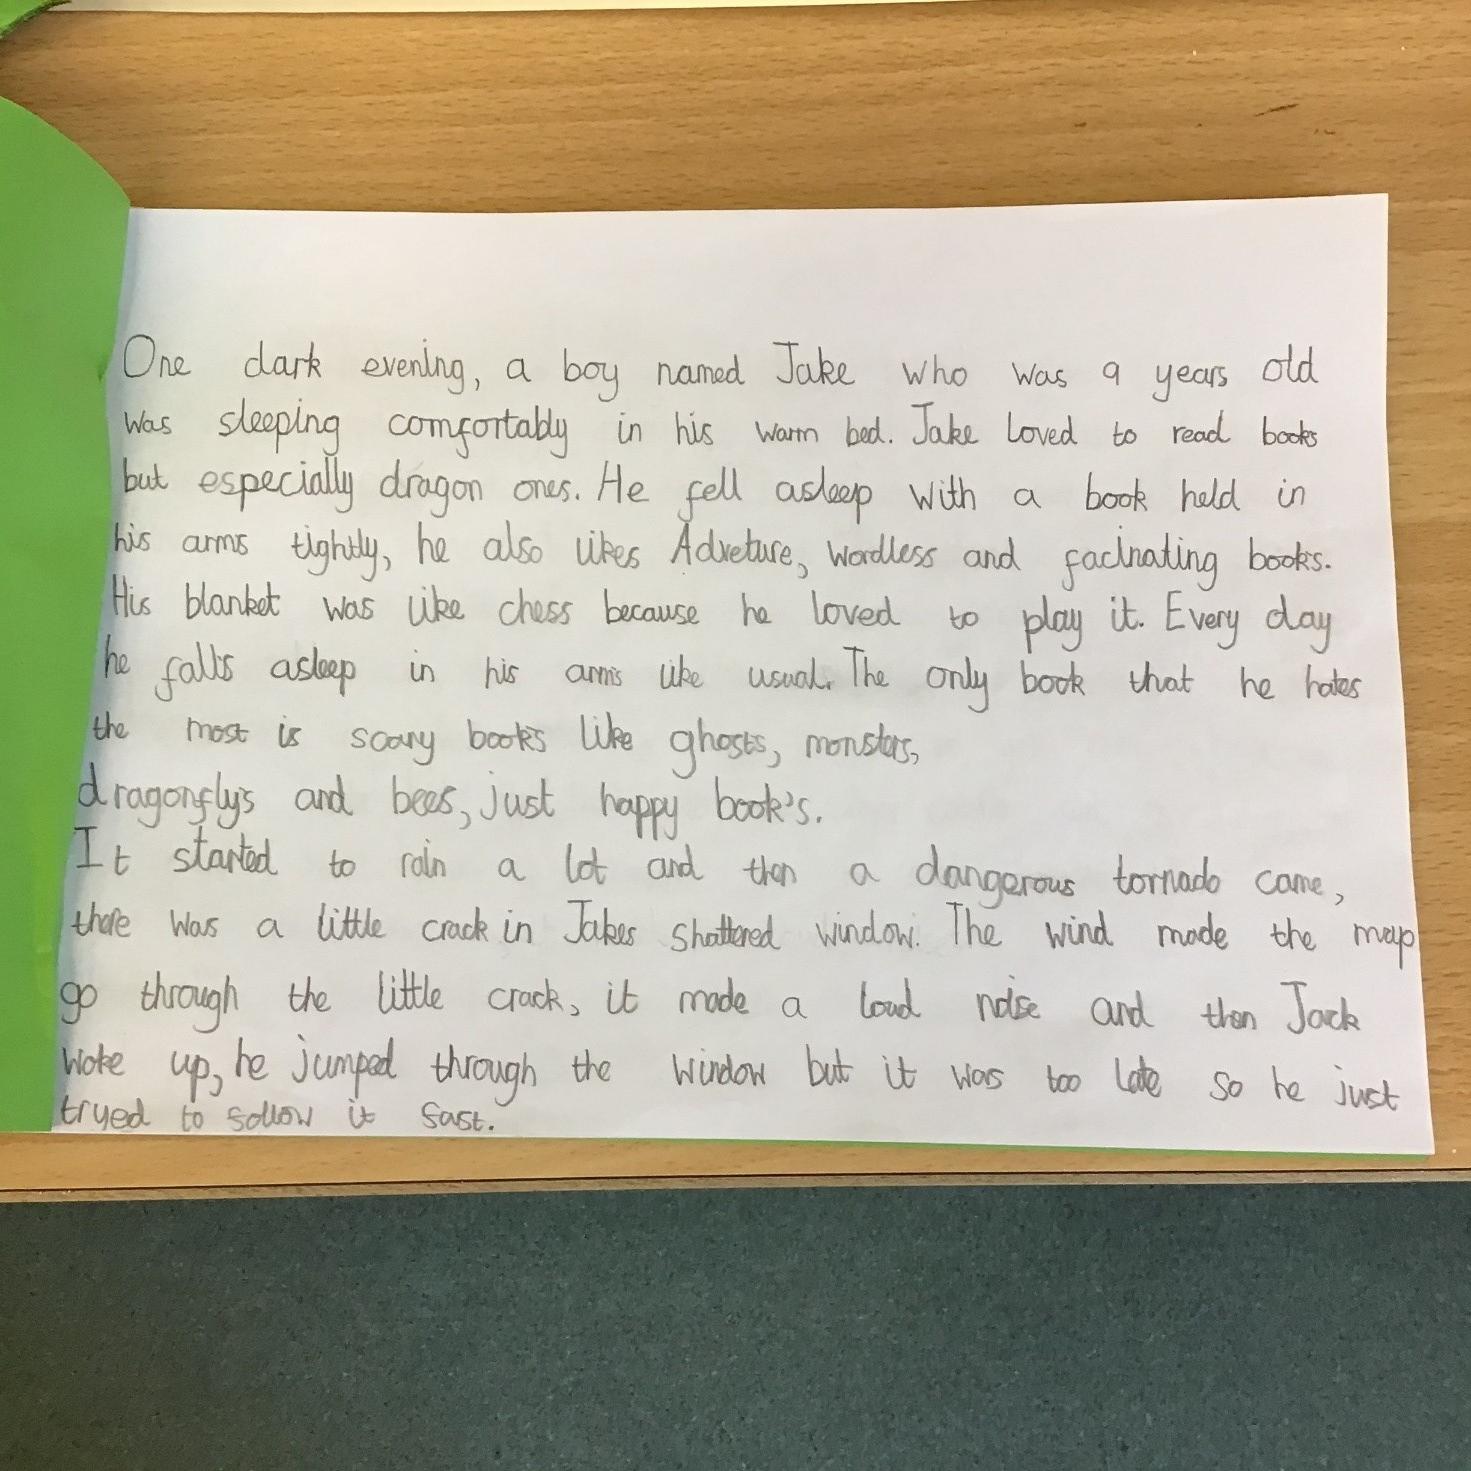 One dark evening, a boy named Jake who was 9 years old
was sleeping comfortably in his warm bed. Jake loved to read books
but especially dragon ones. He fell asleep with a book held in
his arms tightly, he also likes Advreture, wordless and facinating books.
His blanket was like chess because he loved to play it. Every day
he falls asleep in his arms like usual. The only book that he hates
the most is scary book's like ghosts, monsters,
dragonfly's and bees, just happy book's.
It started to rain a lot and then a dangerous tornado came,
there was a little crack in Jakes shattered window. The wind made the map
go through the little crack, it made a loud noise and then Jack
woke up, he jumped through the window but it was too late so he just
tryed to follow it fast.